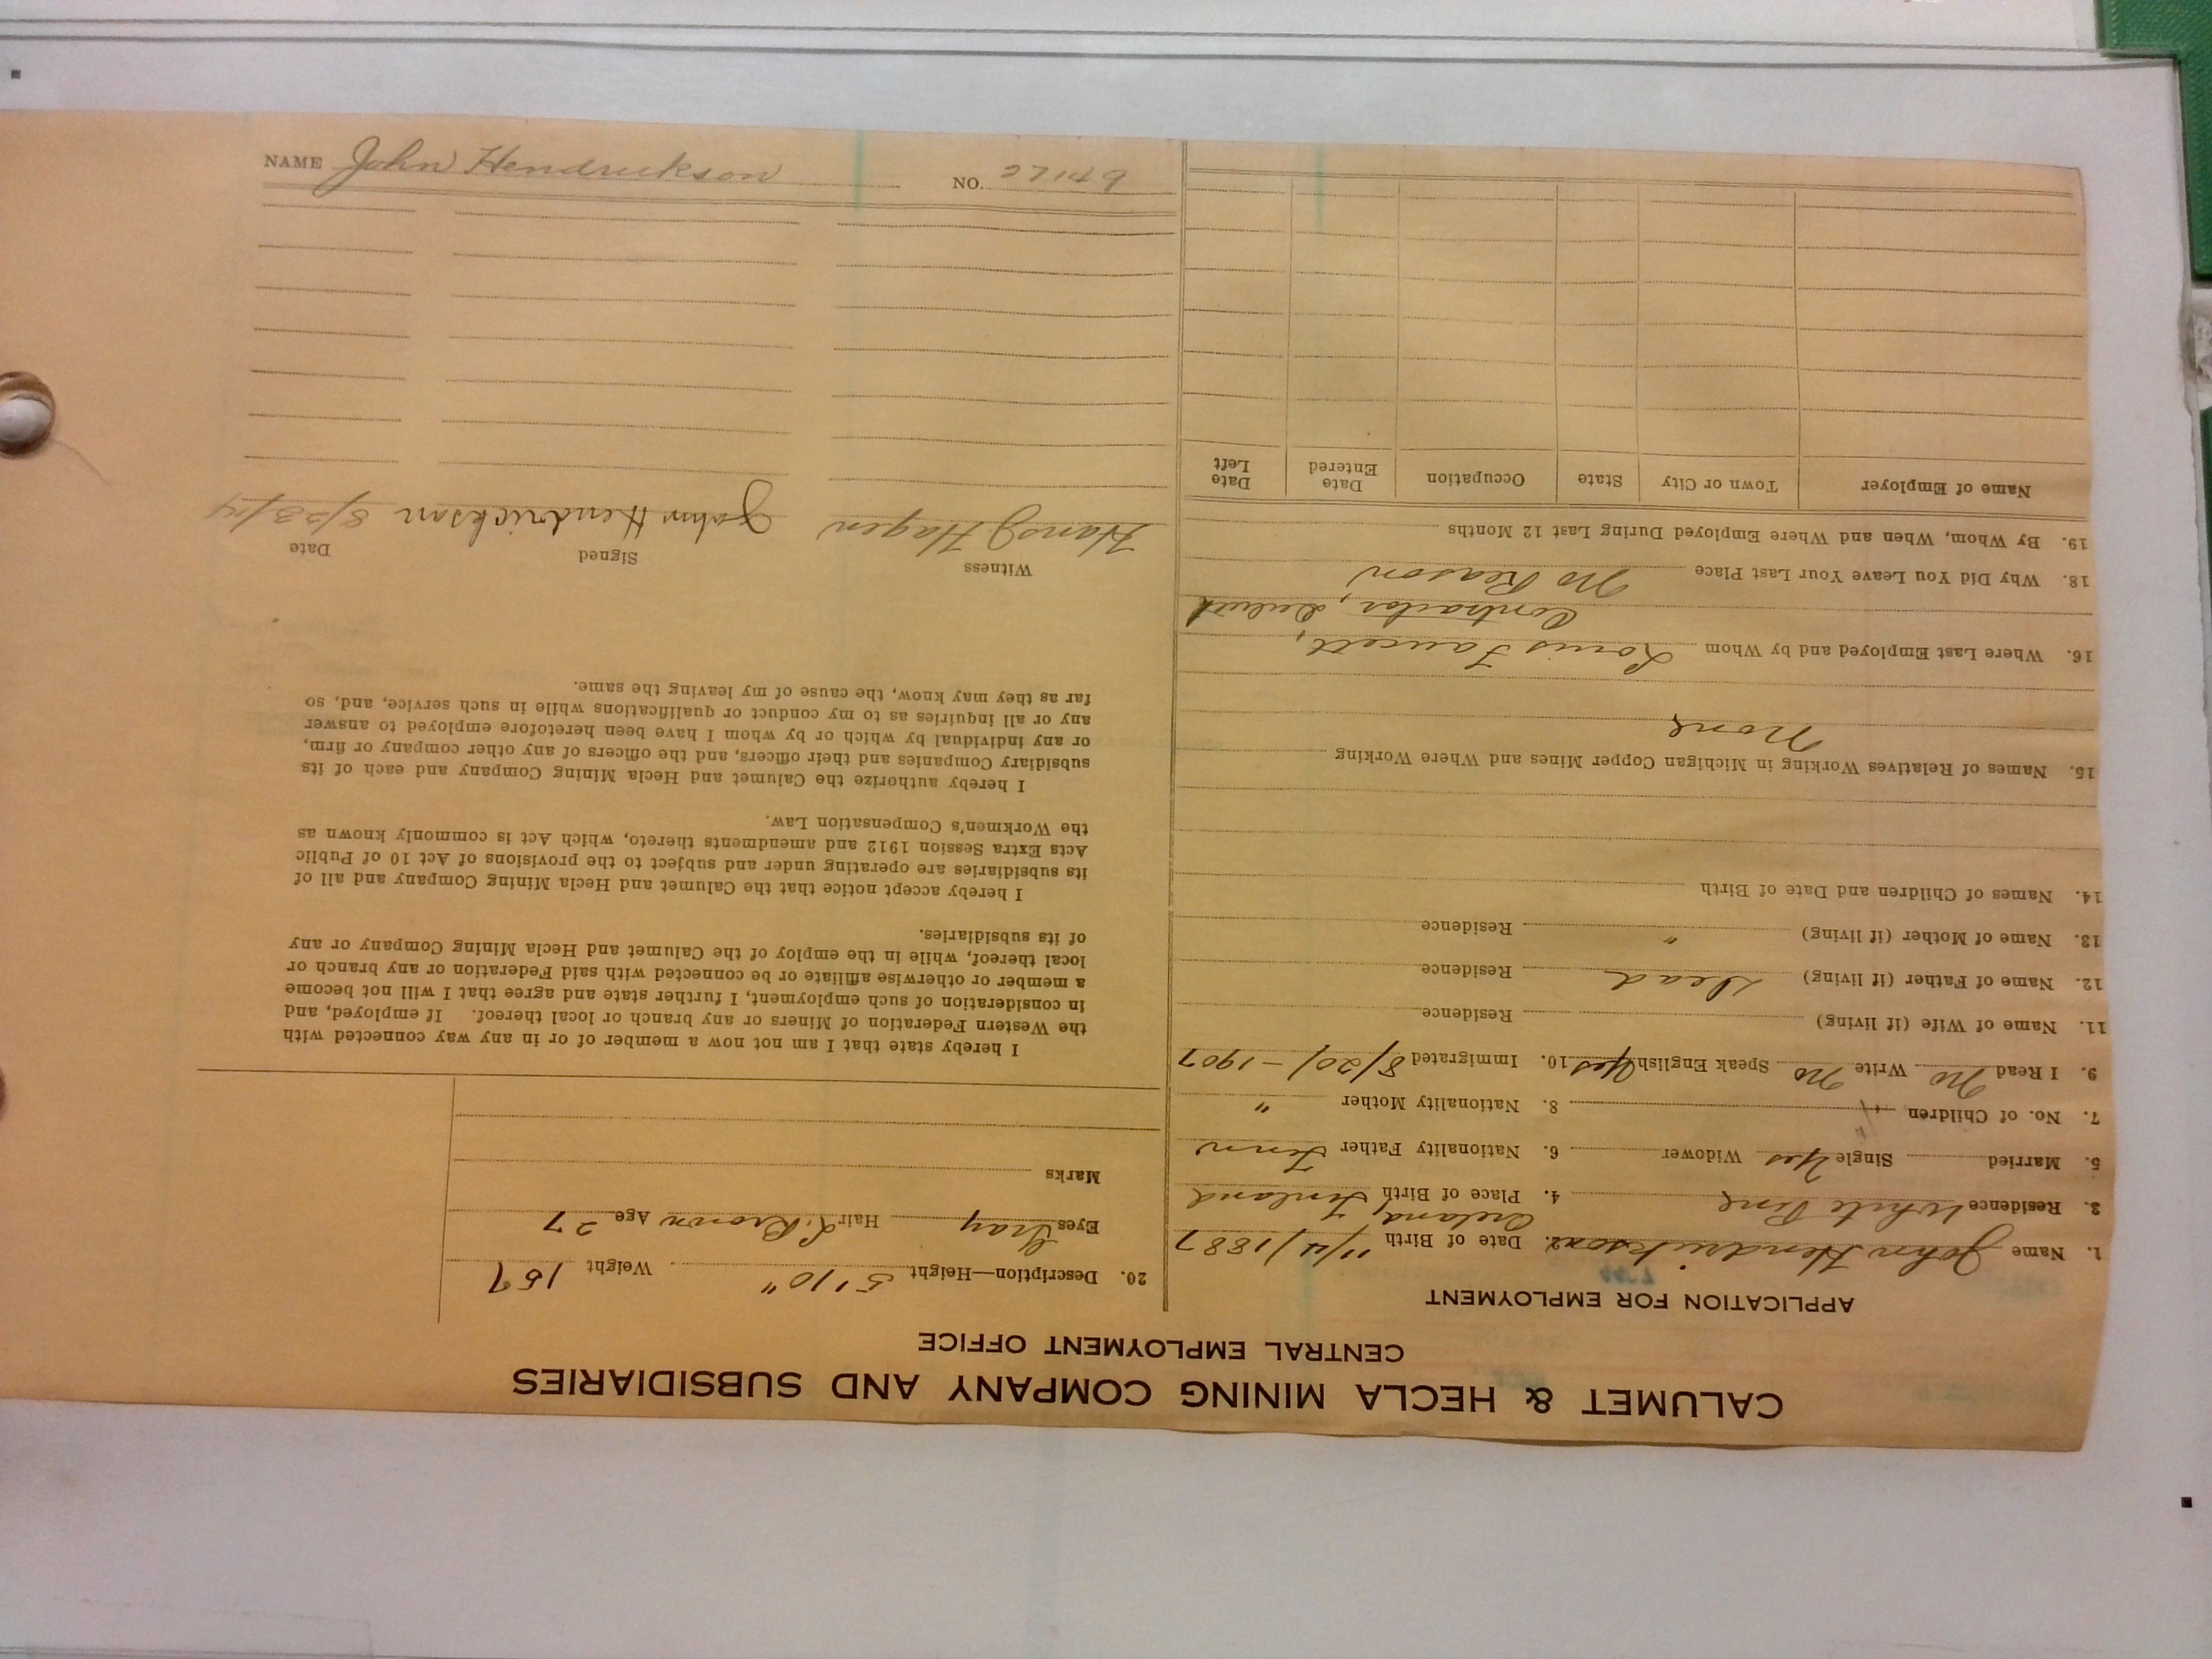 CALUMET & HECLA MINING COMPANY AND SUBSIDIARIES
CENTRAL EMPLOYMENT OFFICE
APPLICATION FOR EMPLOYMENT
1. Name John Hendrickson 2. Date of Birth 11/4/1887
3. Residence White Pine 4. Place of Birth Finland
5. Married Single Yes Widower 6. Nationality Father Finn
7. No. of Children 8. Nationality Mother "
9. I Read No Write No Speak English Yes 10. Immigrated 8/20/-1907
11. Name of Wife (if living) Residence
12. Name of Father (if living) Dead Residence
13. Name of Mother (if living) " Residence
14. Names of Children and Date of Birth
15. Names of Relatives Working in Michigan Copper Mines and Where Working
None
16. Where Last Employed and by Whom Louis Faucett,
Contractor,
18. Why Did You Leave Your Last Place No Reason
19. By Whom, When and Where Employed During Last 12 Months
Name of Employer Town or City State Occupation Date Entered Date Left
20. Description—Height 5'10" Weight 159
Eyes Gray Hair L. Brown Age 27
Marks
I hereby state that I am not now a member of or in any way connected with
the Western Federation of Miners or any branch or local thereof. If employed, and
in consideration of such employment, I further state and agree that I will not become
a member or otherwise affiliate or be connected with said Federation or any branch or
local thereof, while in the employ of the Calumet and Hecla Mining Company or any
of its subsidiaries.
I hereby accept notice that the Calumet and Hecla Mining Company and all of
its subsidiaries are operating under and subject to the provisions of Act 10 of Public
Acts Extra Session 1912 and amendments thereto, which Act is commonly known as
the Workmen's Compensation Law.
I hereby authorize the Calumet and Hecla Mining Company and each of its
subsidiary Companies and their officers, and the officers of any other company or firm,
or any individual by which or by whom I have been heretofore employed to answer
any or all inquiries as to my conduct or qualifications while in such service, and, so
far as they may know, the cause of my leaving the same.
Witness Signed Date
Hans J Hagen John Hendrickson 8/23/14
NAME John Hendrickson NO.